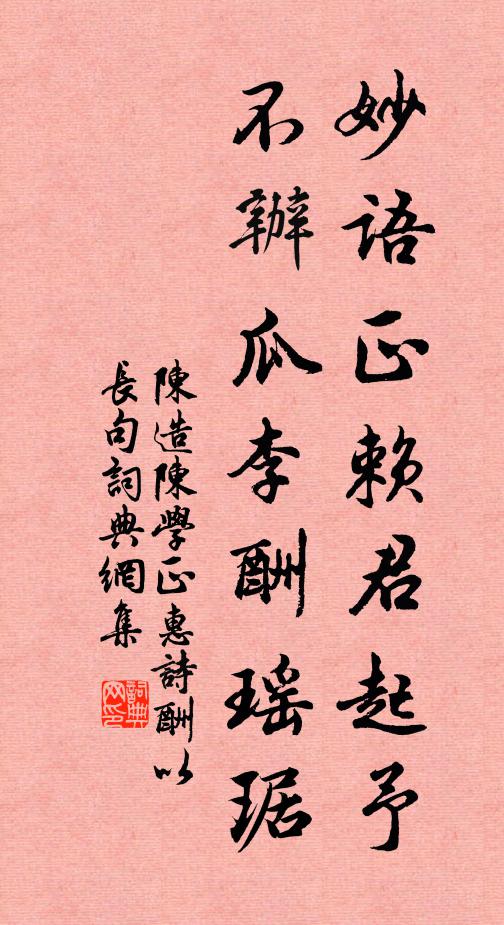 妙語正賴君起予
不辦瓜李酬瑶琚
陳造陳學正惠詩酬以
長句詞典網集
詞典
网印